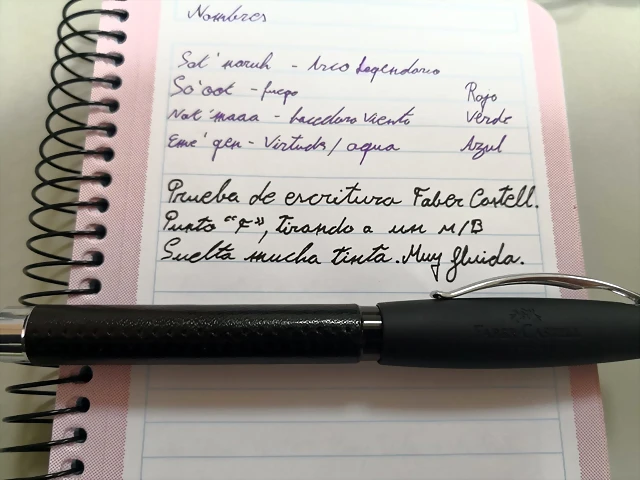 Nombres
Sat'naruh - Arco Legendario
So'oot - fuego Rojo
Nat'maaa - hacedora Viento Verde
Eme'gen - Virtuds / agua Azul
Prueba de escritura Faber Castell.
Punto "F", tirando a un M/B
Suelta mucha tinta. Muy fluida.
FABER-CASTELL